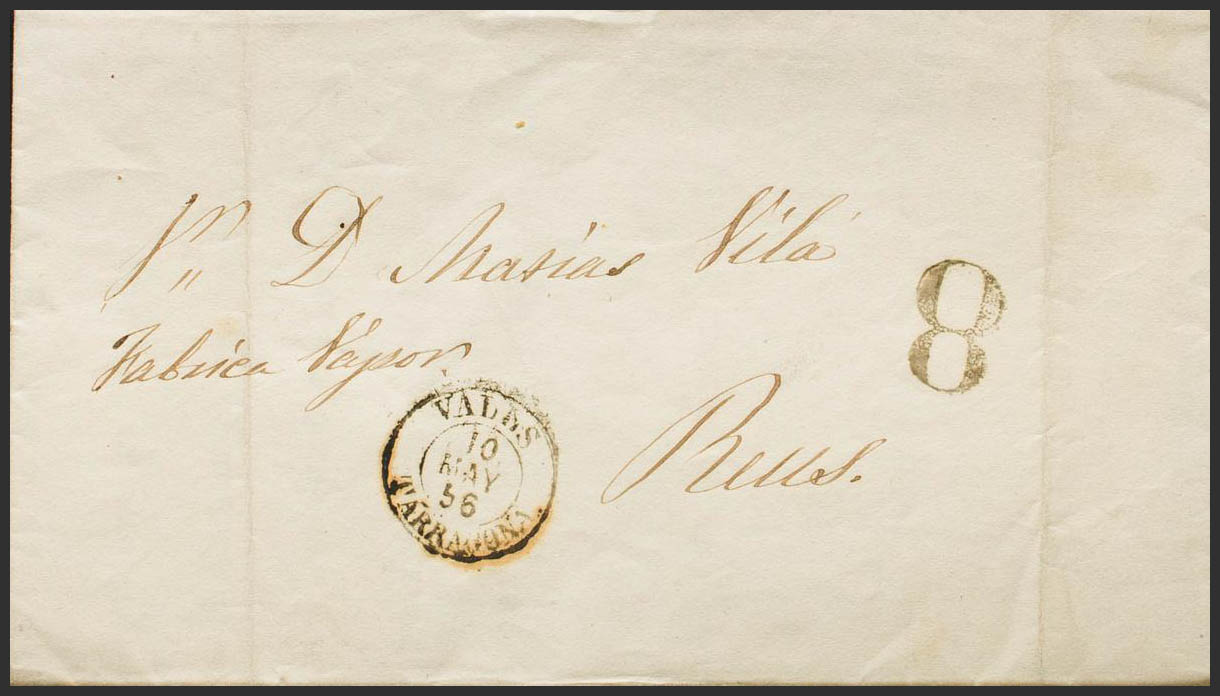 Sr. D Masias Vilá
8
Fabrica Vapor
Reus.
VALLS
10
MAY
56
TARRAGONA.